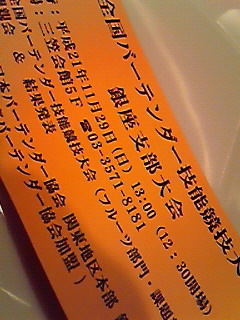 全国バーテンダー技能競技大
銀座支部大会
平成21年11月29日(日) 13:00 (12:30開場)
:三笠会館5F ☎03-3571-8181
バーテンダー技能競技大会(フルーツ部門・課題
& 結果発表
本バーテンダー協会 関東地区本部
バーテンダー協会加盟)